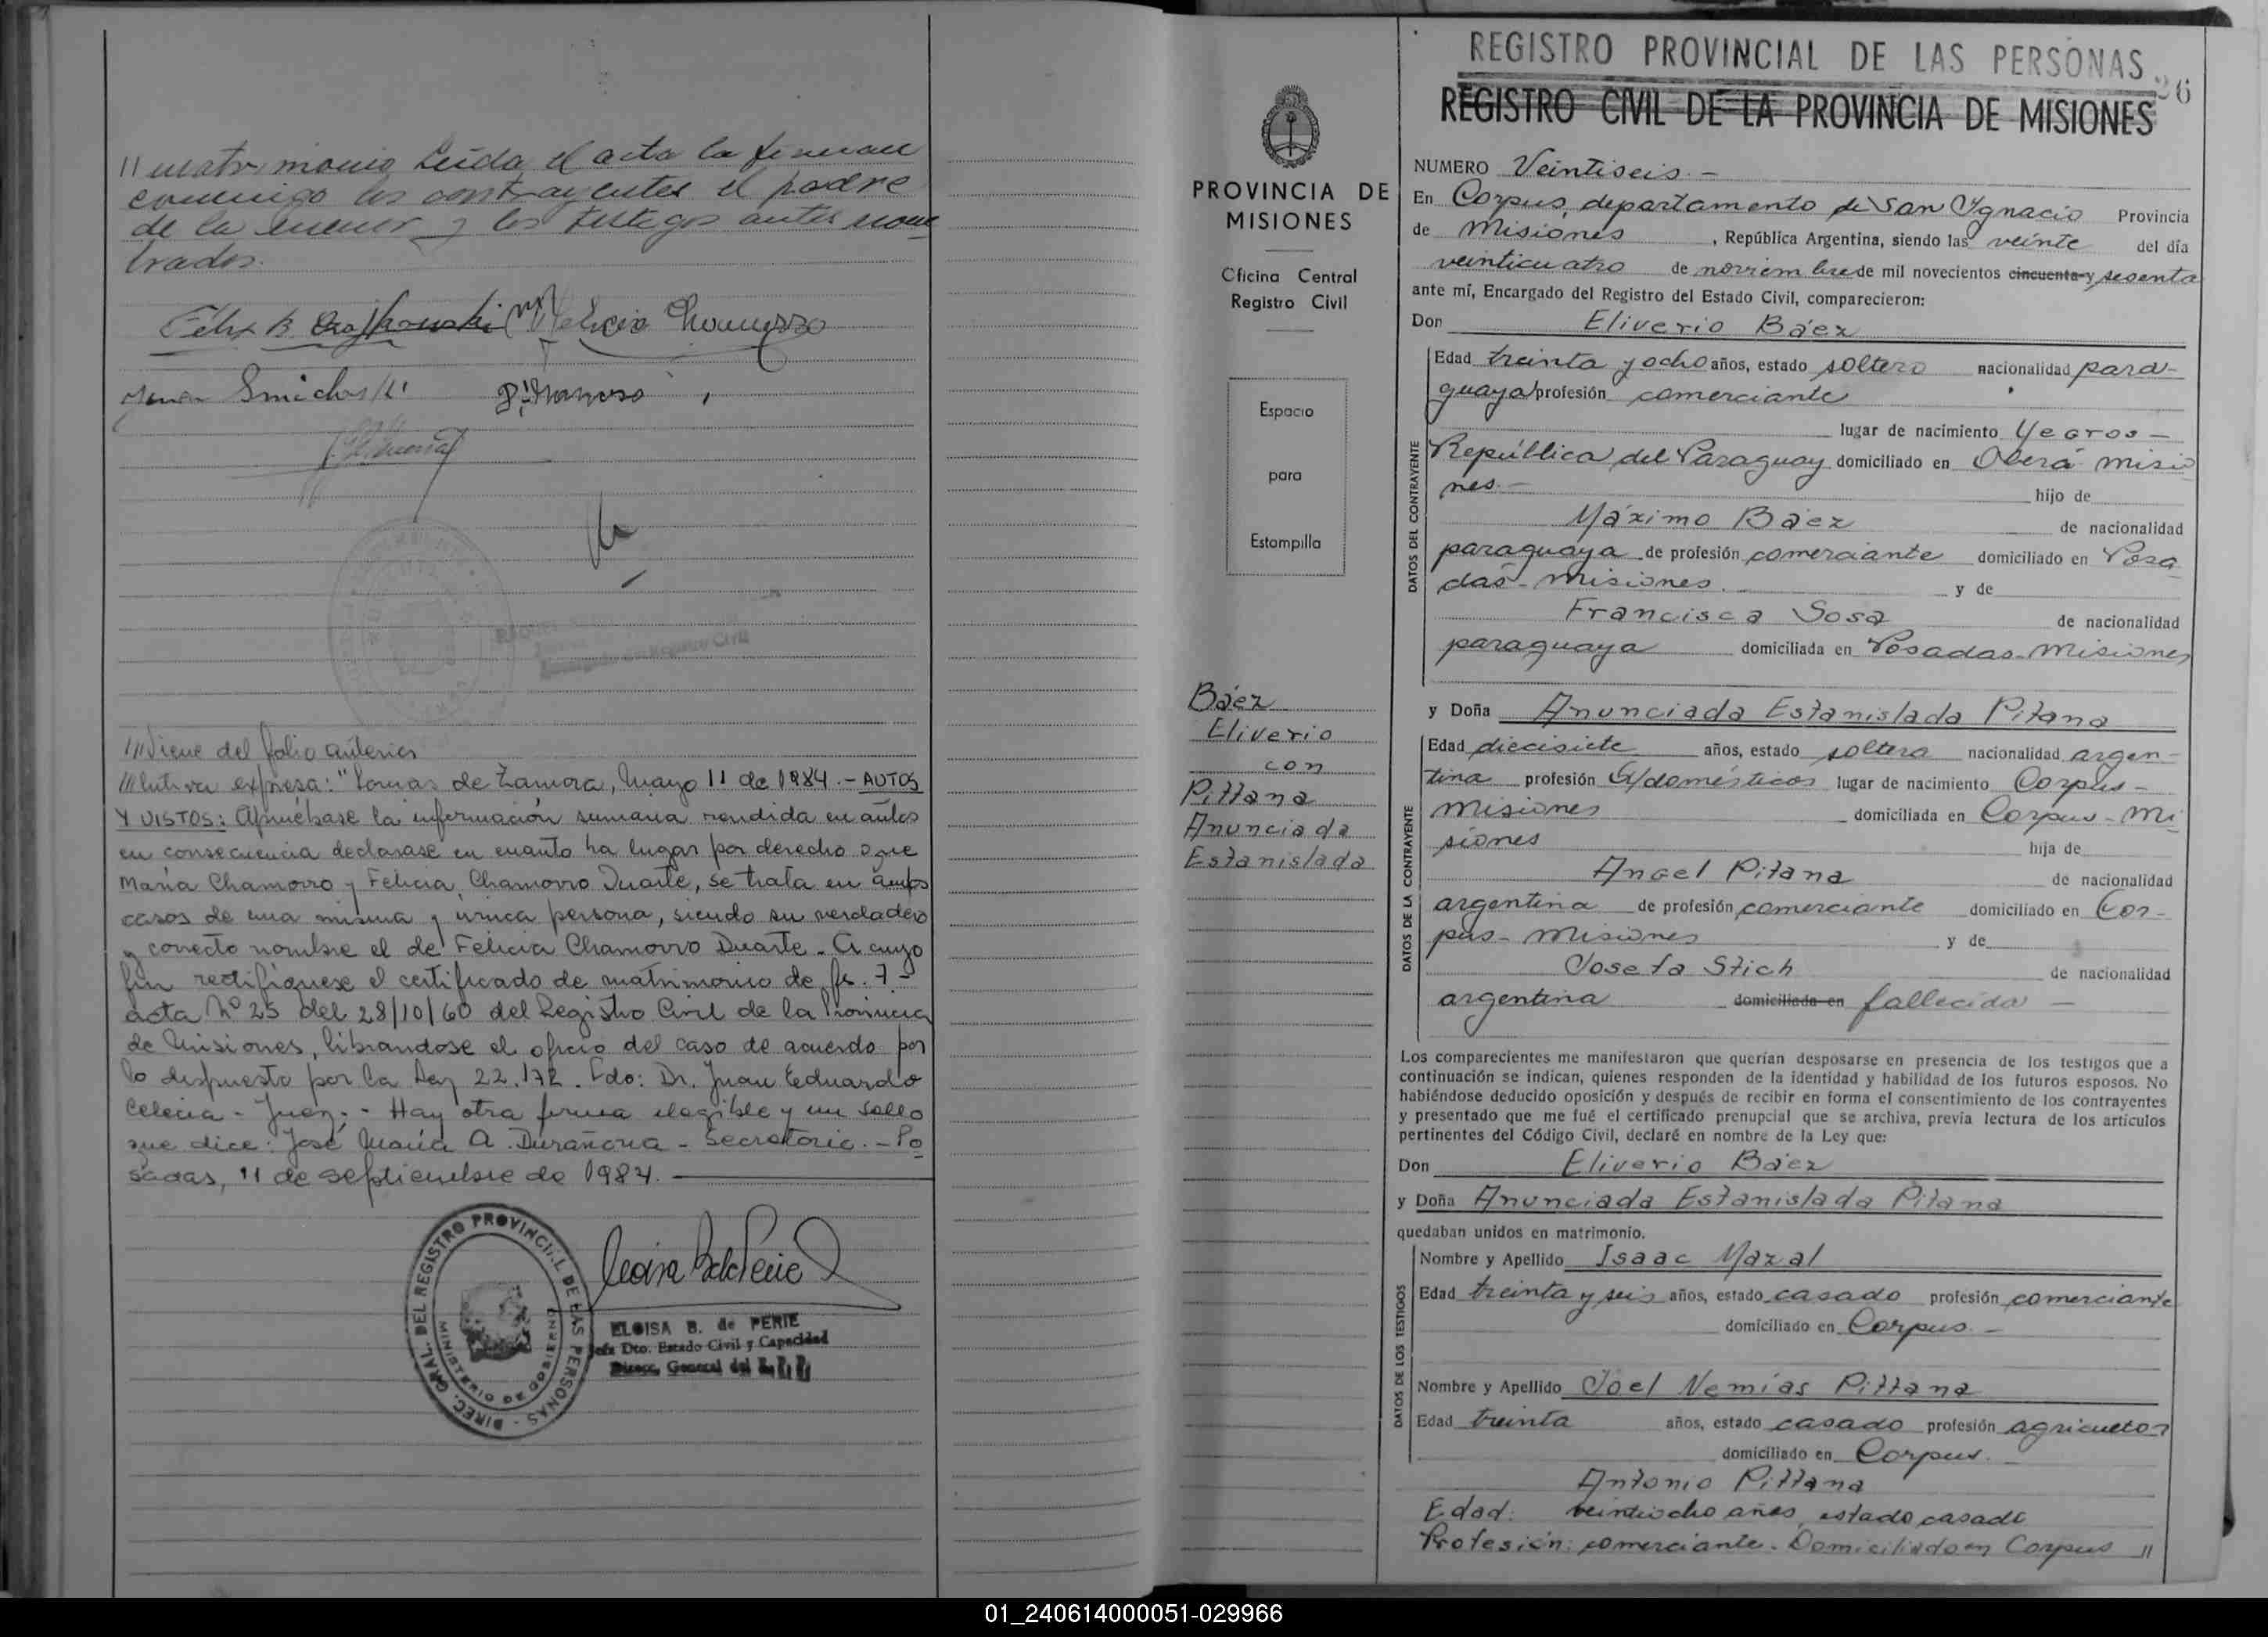 // matrimonio Leída el acta la firman
conmigo los contrayentes el padre
de la menor y los testigos antes nom-
brados.
Felix B.
Felicia Chamorro
Viene del folio anterior
///lutiva expresa: "Lomas de Zamora, Mayo 11 de 1984.- AUTOS
Y VISTOS: Apruébase la información sumaria rendida en autos
en consecuencia declarase en cuanto ha lugar por derecho que
María Chamorro y Felicia Chamorro Duarte, se trata en ambos
casos de una misma y única persona, siendo su verdadero
y correcto nombre el de Felicia Chamorro Duarte - A cuyo
fin rectifíquese el certificado de matrimonio de fs. 7-
acta Nº 25 del 28/10/60 del Registro Civil de la Provincia
de Misiones, librandose el oficio del caso de acuerdo por
lo dispuesto por la Ley 22.172. Fdo: Dr. Juan Eduardo
Celecia - Juez.- Hay otra firma ilegible y un sello
que dice: José María A. Durañona - Secretario.- Po
sadas, 11 de septiembre de 1984.
DIREC. GRAL. DEL REGISTRO PROVINCIAL DE LAS PERSONAS
MINISTERIO DE GOBIERNO
ELOISA B. de PERIE
Jefa Dto. Estado Civil y Capacidad
Direcc. General del R. P. P.
PROVINCIA DE
MISIONES
Oficina Central
Registro Civil
Espacio
para
Estampilla
Báez
Eliverio
con
Pittana
Anunciada
Estanislada
REGISTRO PROVINCIAL DE LAS PERSONAS
26
REGISTRO CIVIL DE LA PROVINCIA DE MISIONES
NUMERO Veintiseis.-
En Corpus, departamento de San Ygnacio Provincia
de Misiones, República Argentina, siendo las veinte del día
veinticuatro de noviembre de mil novecientos cincuenta y sesenta
ante mí, Encargado del Registro del Estado Civil, comparecieron:
Don Eliverio Báez
DATOS DEL CONTRAYENTE
Edad treinta y ocho años, estado soltero nacionalidad para-
guaya profesión comerciante
lugar de nacimiento Yegros-
República del Paraguay domiciliado en Oberá misio
nes.- hijo de
Máximo Báez de nacionalidad
paraguaya de profesión comerciante domiciliado en Posa
das-Misiones. y de
Francisca Sosa de nacionalidad
paraguaya domiciliada en Posadas-Misiones
y Doña Anunciada Estanislada Pitana
DATOS DE LA CONTRAYENTE
Edad diecisiete años, estado soltera nacionalidad argen-
tina profesión Q/domésticos lugar de nacimiento Corpus-
Misiones domiciliada en Corpus-Mi
siones hija de
Angel Pitana de nacionalidad
argentina de profesión comerciante domiciliado en Cor-
pus-Misiones y de
Josefa Stich de nacionalidad
argentina domiciliada en fallecida -
Los comparecientes me manifestaron que querían desposarse en presencia de los testigos que a
continuación se indican, quienes responden de la identidad y habilidad de los futuros esposos. No
habiéndose deducido oposición y después de recibir en forma el consentimiento de los contrayentes
y presentado que me fué el certificado prenupcial que se archiva, previa lectura de los artículos
pertinentes del Código Civil, declaré en nombre de la Ley que:
Don Eliverio Báez
y Doña Anunciada Estanislada Pitana
quedaban unidos en matrimonio.
DATOS DE LOS TESTIGOS
Nombre y Apellido Isaac Mazal
Edad treinta y seis años, estado casado profesión comerciante
domiciliado en Corpus.-
Nombre y Apellido Joel Nemías Pittana
Edad treinta años, estado casado profesión agricultor
domiciliado en Corpus.
Antonio Pittana
Edad: veintiocho años, estado casado
Profesión: comerciante. Domiciliado en Corpus //
01_240614000051-029966